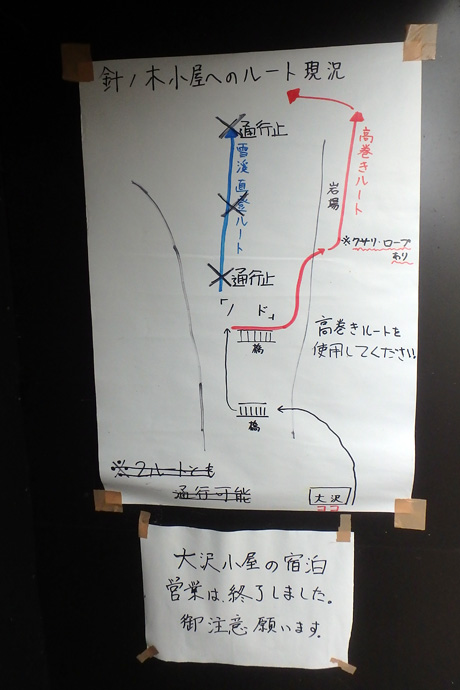 針ノ木小屋へのルート現況
通行止
雪渓直登ルート
通行止
高巻きルート
岩場
※クサリ・ロープ
あり
ノド
橋
高巻きルートを
使用してください
橋
※2ルートとも
通行可能
大沢
ココ
大沢小屋の宿泊
営業は、終了しました。
御注意願います。